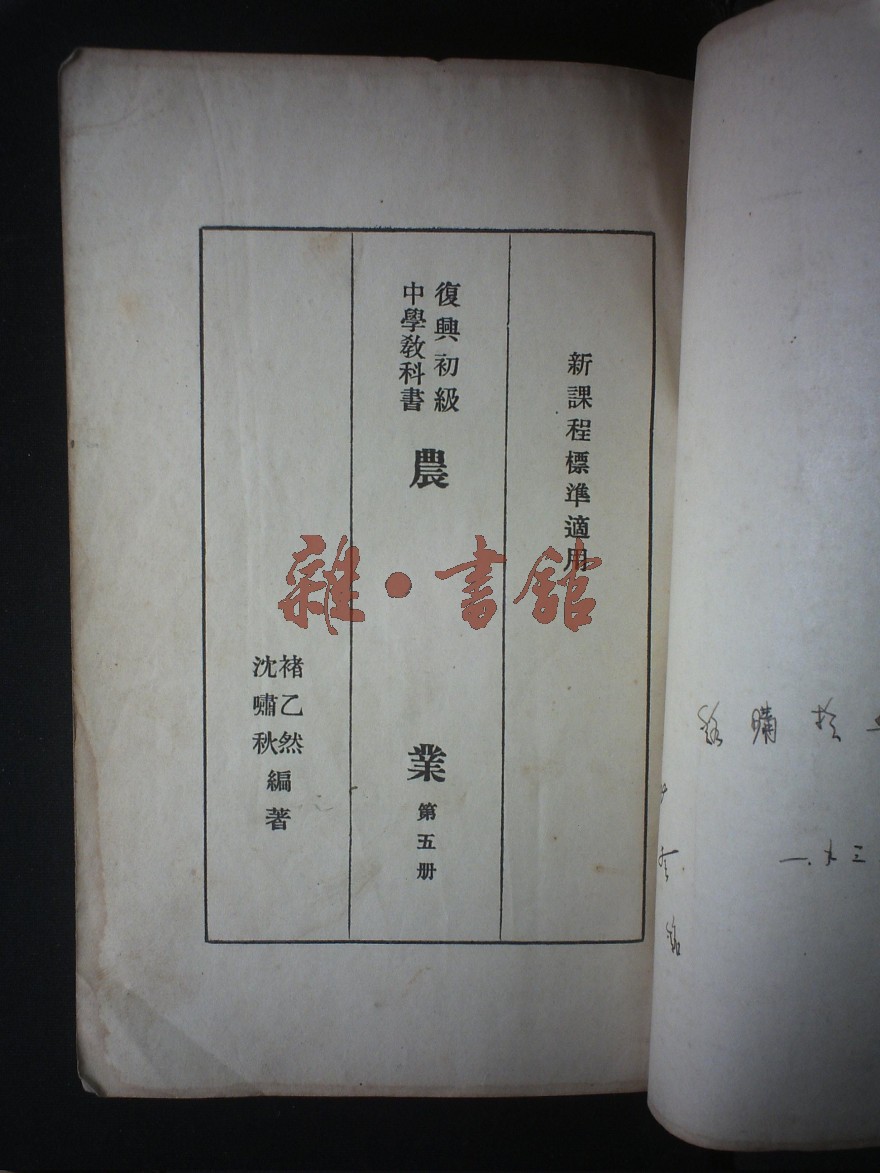 新課程標準適用
復興初級
中學教科書
農業 第五册
褚乙然
沈嘯秋
編著
雜·書館